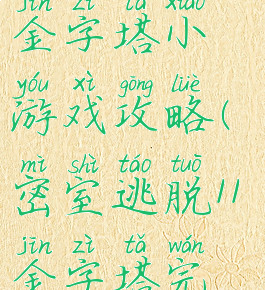 jīn zì tǎ xiǎo
金字塔小
yóu xì gōng lüè
游戏攻略(
mì shì táo tuō
密室逃脱11
jīn zì tǎ wán
金字塔完